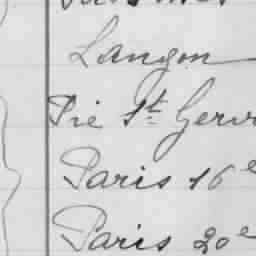 Langon
Pré St Gerv
Paris 16e
Paris 20e